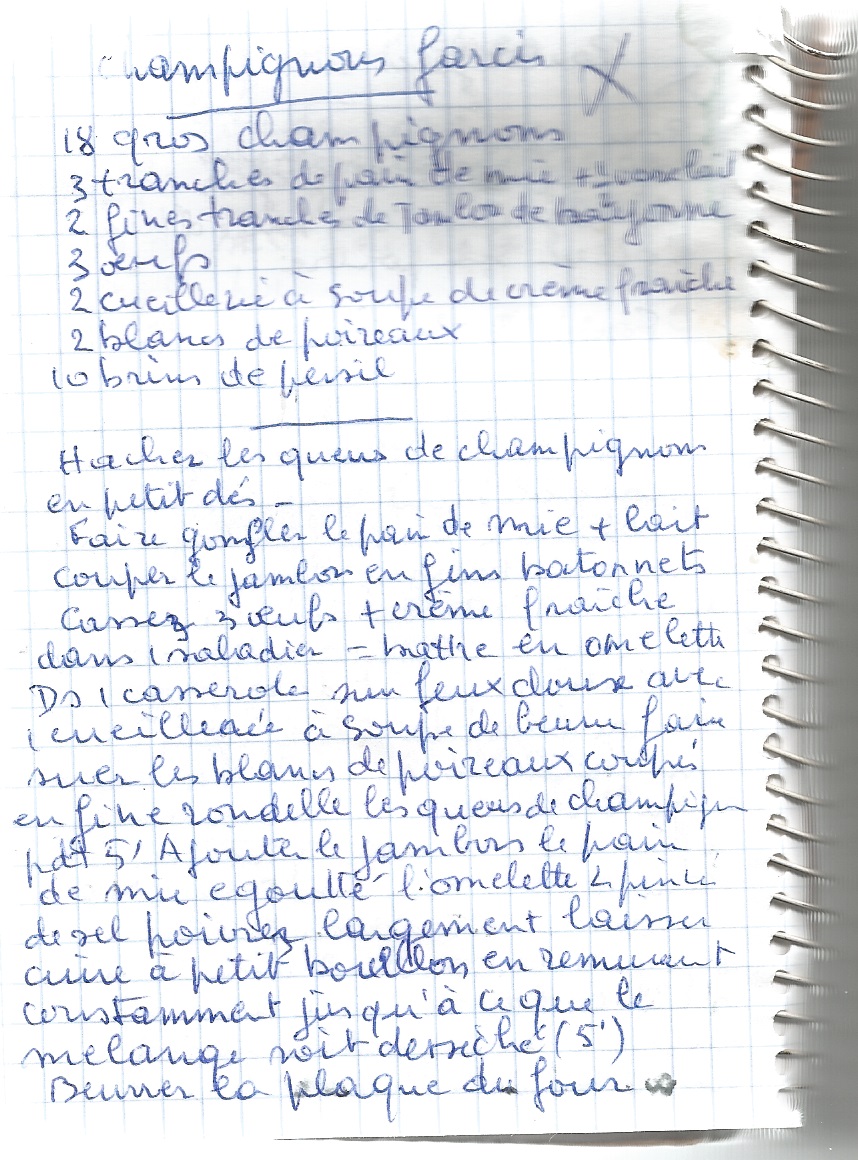 Champignons farcis X
18 gros champignons
3 tranches de pain de mie + lait
2 fines tranches de Jambon de bayonne
3 œufs
2 cueillerie à soupe de crème fraîche
2 blancs de poireaux
10 brins de persil
Hacher les queues de champignons
en petit dés -
Faire gonfler le pain de mie + lait
couper le jambon en fins batonnets
Cassez 3 œufs + crème fraîche
dans 1 saladier = battre en omelette
Ds 1 casserole sur feux doux avec
1 cueilleree à soupe de beurre faire
suer les blancs de poireaux coupés
en fine rondelle les queues de champign
pdt 5' Ajouter le jambon le pain
de mie egoutté l'omelette 2 pincé
de sel poivrez largement laisser
cuire à petit bouillon en remuant
constamment jusqu'à ce que le
melange soit desséché (5')
Beurrer la plaque du four